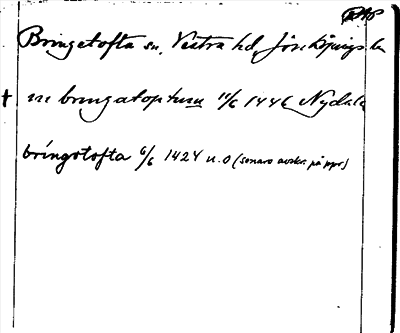 Bringetofta sn, Västra hd, Jönköpings län
† in bringatoptum 11/6 1446 Nydala
bringotofta 6/6 1424 u.o (senare avskr. på ppr)